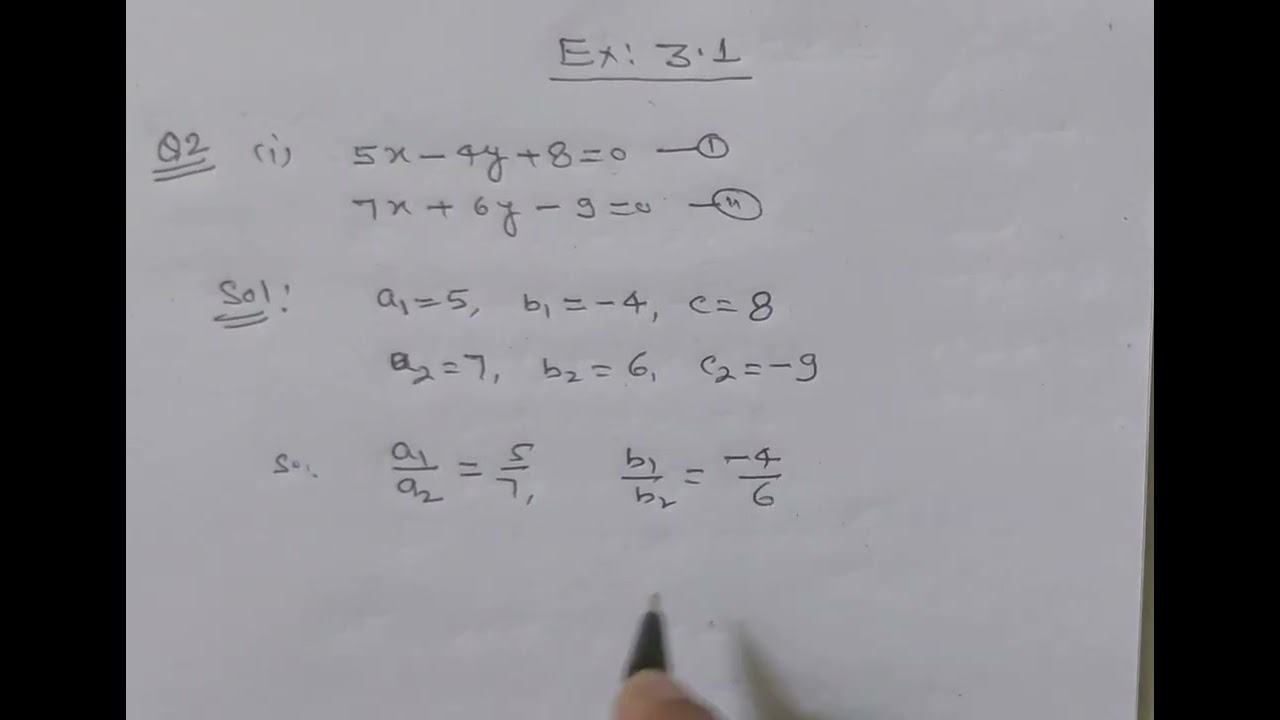 Ex: 3.1
Q2 (i) 5x - 4y + 8 = 0 — (I)
7x + 6y - 9 = 0 — (II)
Sol: a₁ = 5, b₁ = -4, c = 8
a₂ = 7, b₂ = 6, c₂ = -9
So, a₁/a₂ = 5/7, b₁/b₂ = -4/6